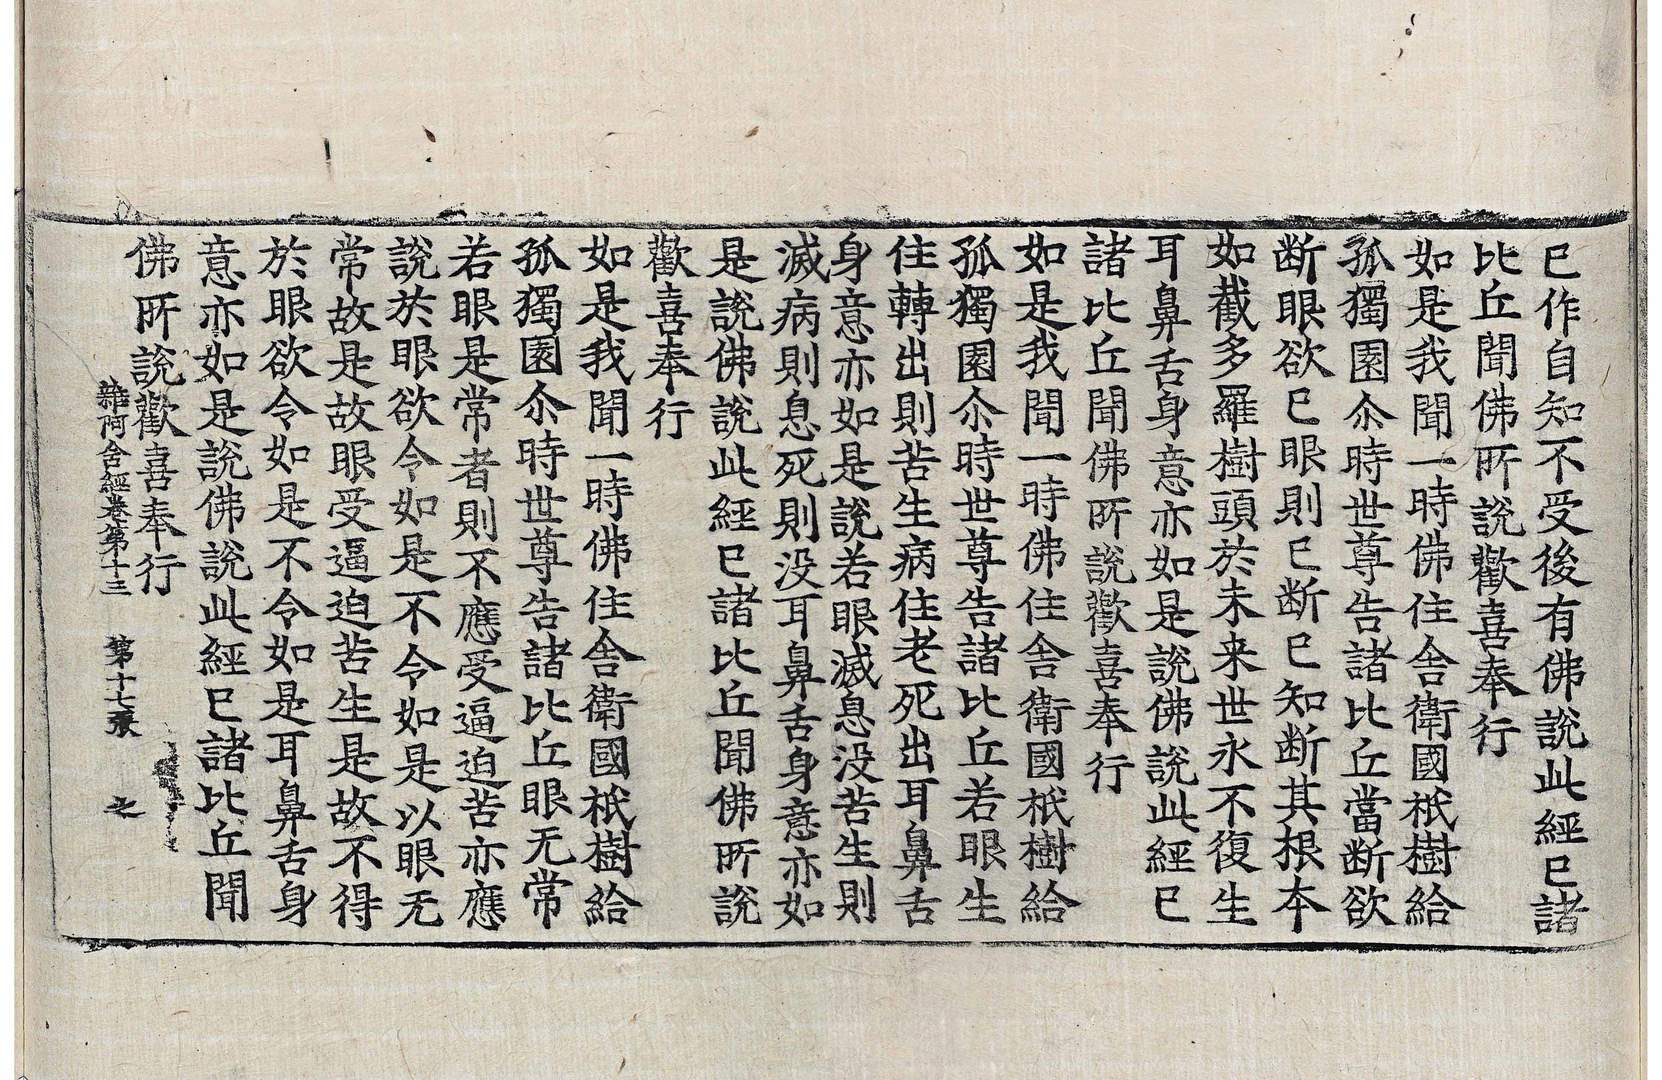 已作自知不受後有佛說此經已諸
比丘聞佛所說歡喜奉行
如是我聞一時佛住舍衛國祇樹給
孤獨園尒時世尊告諸比丘當断欲
断眼欲已眼則已断已知断其根本
如截多羅樹頭於未来世永不復生
耳鼻舌身意亦如是說佛說此經已
諸比丘聞佛所說歡喜奉行
如是我聞一時佛住舍衛國祇樹給
孤獨園尒時世尊告諸比丘若眼生
住轉出則苦生病住老死出耳鼻舌
身意亦如是說若眼滅息没苦生則
滅病則息死則没耳鼻舌身意亦如
是說佛說此經已諸比丘聞佛所說
歡喜奉行
如是我聞一時佛住舍衛國祇樹給
孤獨園尒時世尊告諸比丘眼无常
若眼是常者則不應受逼迫苦亦應
說於眼欲令如是不令如是以眼无
常故是故眼受逼迫苦生是故不得
於眼欲令如是不令如是耳鼻舌身
意亦如是說佛說此經已諸比丘聞
佛所說歡喜奉行
雜阿含經卷第十三 第十七張